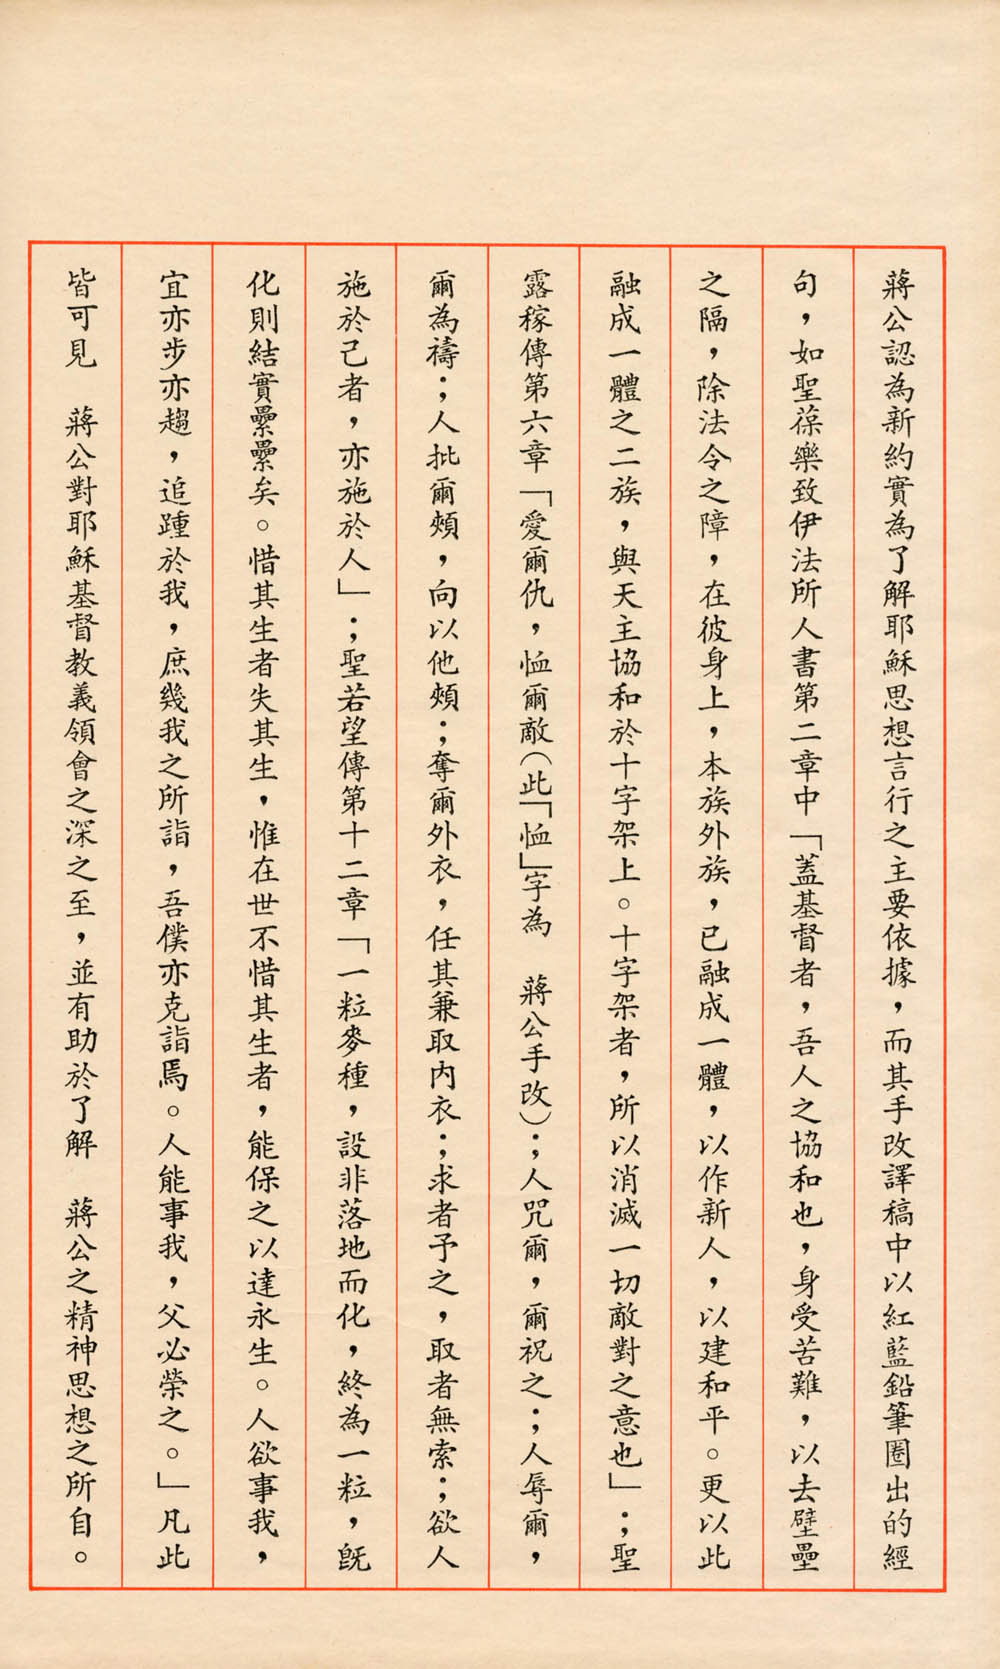 蔣公認為新約實為了解耶穌思想言行之主要依據，而其手改譯稿中以紅藍鉛筆圈出的經
句，如聖葆樂致伊法所人書第二章中「蓋基督者，吾人之協和也，身受苦難，以去壁壘
之隔，除法令之障，在彼身上，本族外族，已融成一體，以作新人，以建和平。更以此
融成一體之二族，與天主協和於十字架上。十字架者，所以消滅一切敵對之意也」；聖
露稼傳第六章「愛爾仇，恤爾敵（此「恤」字為　蔣公手改）；人咒爾，爾祝之；人辱爾，
爾為禱；人批爾頰，向以他頰；奪爾外衣，任其兼取內衣；求者予之，取者無索；欲人
施於己者，亦施於人」；聖若望傳第十二章「一粒麥種，設非落地而化，終為一粒，旣
化則結實纍纍矣。惜其生者失其生，惟在世不惜其生者，能保之以達永生。人欲事我，
宜亦步亦趨，追踵於我，庶幾我之所詣，吾僕亦克詣焉。人能事我，父必榮之。」凡此
皆可見　蔣公對耶穌基督教義領會之深之至，並有助於了解　蔣公之精神思想之所自。